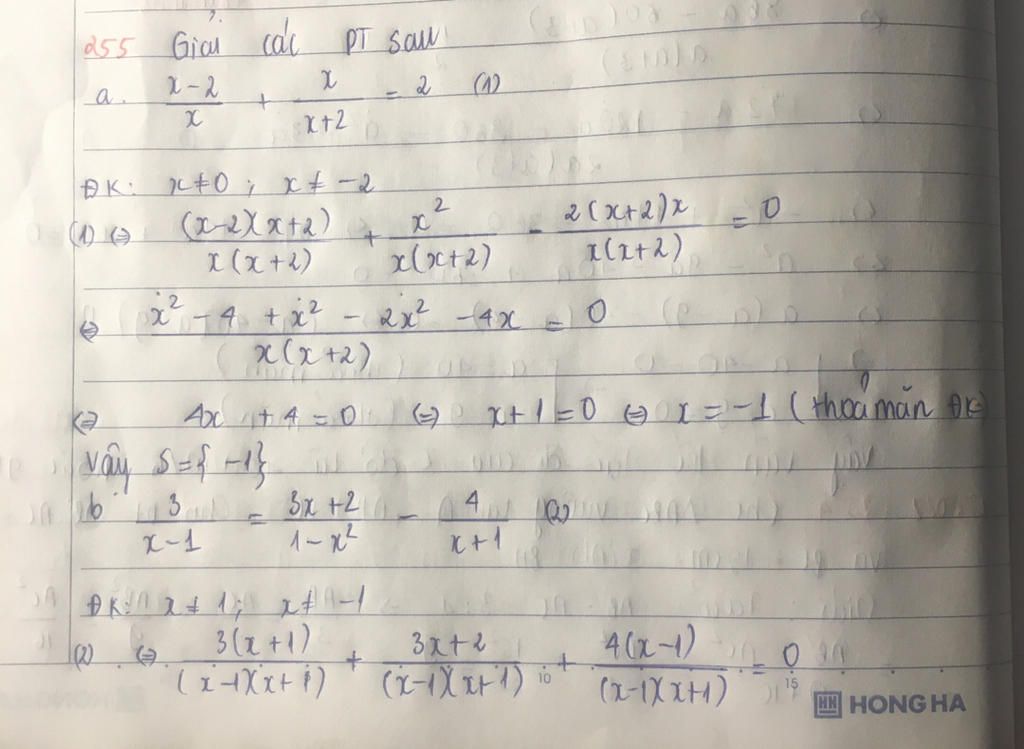 255 Giải các PT sau
a. \frac{x-2}{x} + \frac{x}{x+2} = 2 (1)
ĐK: x ≠ 0 ; x ≠ -2
(1) ⇔ \frac{(x-2)(x+2)}{x(x+2)} + \frac{x^2}{x(x+2)} - \frac{2(x+2)x}{x(x+2)} = 0
⇔ \frac{x^2 - 4 + x^2 - 2x^2 - 4x}{x(x+2)} = 0
⇔ 4x + 4 = 0 ⇔ x + 1 = 0 ⇔ x = -1 (thoả mãn ĐK)
Vậy S = { -1}
b \frac{3}{x-1} = \frac{3x+2}{1-x^2} - \frac{4}{x+1} (2)
ĐK: x ≠ 1; x ≠ -1
(2) ⇔ \frac{3(x+1)}{(x-1)(x+1)} + \frac{3x+2}{(x-1)(x+1)} + \frac{4(x-1)}{(x-1)(x+1)} = 0
10 15
HH HONG HA